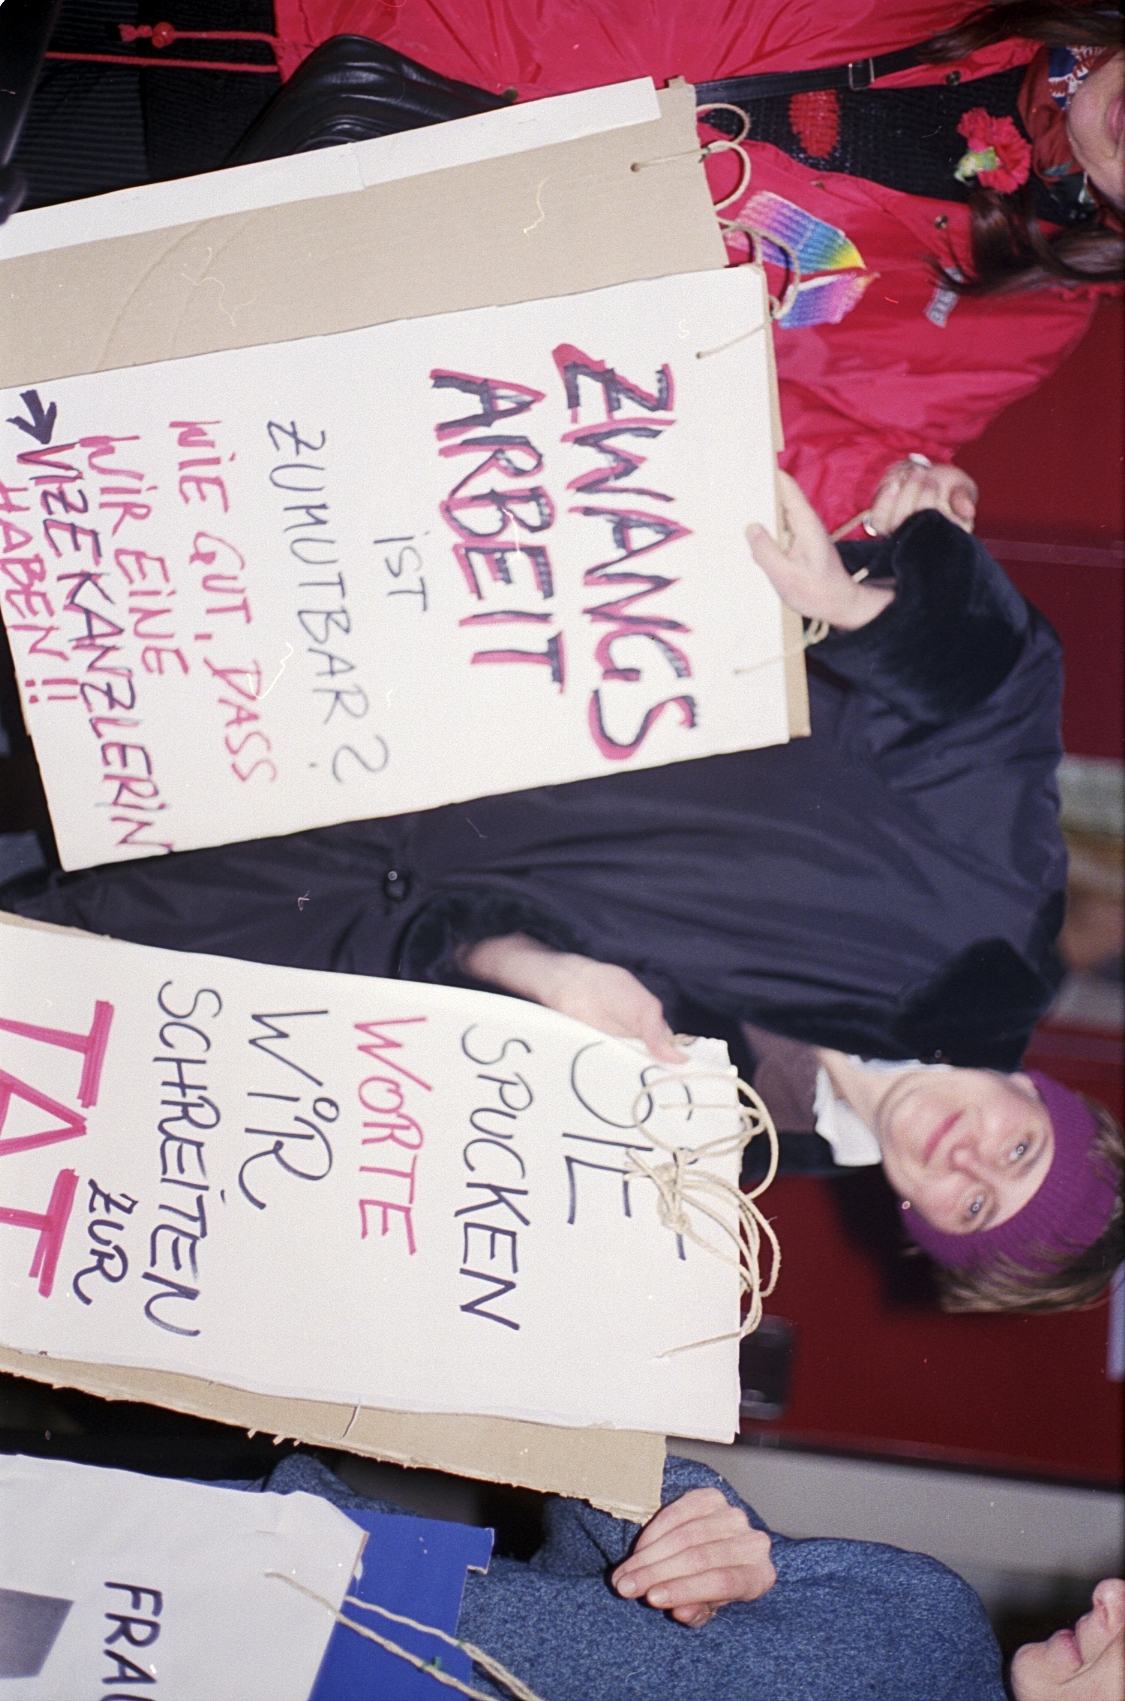 ZWANGS
ARBEIT
iST
ZUMUTBAR?
WiE GUT, DASS
WiR EiNE
VIZEKANZLERiN
HABEN!!
SiE
SPUCKEN
WORTE
WiR
SCHREiTEN
ZUR
TAT
FRAU